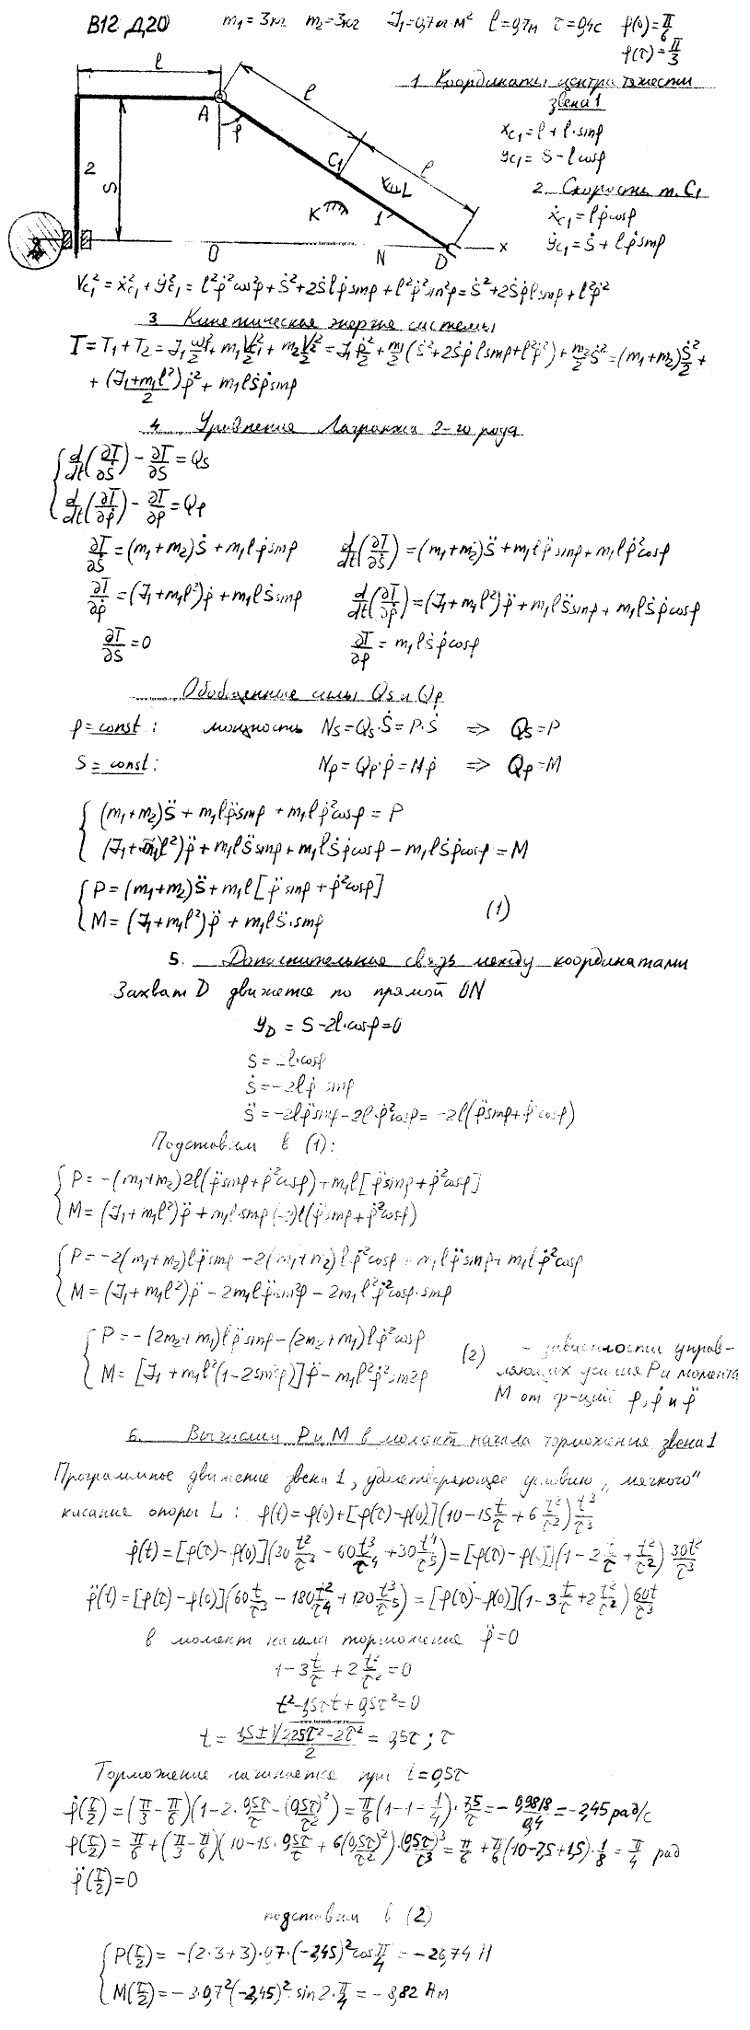 В12 Д20 m₁ = 3кг m₂ = 3кг J₁ = 0,7 кг·м² l = 0,7м τ = 0,4с φ(0) = π/6
φ(τ) = π/3
l
l
A
φ
C₁
l
2
S
K
L
1
O
N
D
x
1 Координаты центра тяжести
звена 1
x_C₁ = l + l·sinφ
y_C₁ = S - l cosφ
2 Скорость т. C₁
ẋ_C₁ = lφ̇cosφ
ẏ_C₁ = Ṡ + lφ̇sinφ
V_C₁² = ẋ_C₁² + ẏ_C₁² = l²φ̇²cos²φ + Ṡ² + 2Ṡlφ̇sinφ + l²φ̇²sin²φ = Ṡ² + 2Ṡφ̇lsinφ + l²φ̇²
3 Кинетическая энергия системы
T = T₁ + T₂ = J₁ω₁²/2 + m₁V_C₁²/2 + m₂V₂²/2 = J₁φ̇²/2 + m₁/2(Ṡ² + 2Ṡφ̇lsinφ + l²φ̇²) + m₂/2Ṡ² = (m₁+m₂)Ṡ²/2 +
+ (J₁+m₁l²)/2 φ̇² + m₁lṠφ̇sinφ
4 Уравнение Лагранжа 2-го рода
d/dt(∂T/∂Ṡ) - ∂T/∂S = Q_S
d/dt(∂T/∂φ̇) - ∂T/∂φ = Q_φ
∂T/∂Ṡ = (m₁+m₂)Ṡ + m₁lφ̇sinφ d/dt(∂T/∂Ṡ) = (m₁+m₂)S̈ + m₁lφ̈sinφ + m₁lφ̇²cosφ
∂T/∂φ̇ = (J₁+m₁l²)φ̇ + m₁lṠsinφ d/dt(∂T/∂φ̇) = (J₁+m₁l²)φ̈ + m₁lS̈sinφ + m₁lṠφ̇cosφ
∂T/∂S = 0 ∂T/∂φ = m₁lṠφ̇cosφ
Обобщенные силы Q_S и Q_φ
φ = const: мощность N_S = Q_S·Ṡ = P·Ṡ ⇒ Q_S = P
S = const: N_φ = Q_φ·φ̇ = Mφ̇ ⇒ Q_φ = M
(m₁+m₂)S̈ + m₁lφ̈sinφ + m₁lφ̇²cosφ = P
(J₁+m₁l²)φ̈ + m₁lS̈sinφ + m₁lṠφ̇cosφ - m₁lṠφ̇cosφ = M
P = (m₁+m₂)S̈ + m₁l[φ̈sinφ + φ̇²cosφ]
M = (J₁+m₁l²)φ̈ + m₁lS̈·sinφ (1)
5. Дополнительная связь между координатами
Захват D движется по прямой ON
y_D = S - 2l·cosφ = 0
S = 2l·cosφ
Ṡ = -2lφ̇ sinφ
S̈ = -2lφ̈sinφ - 2lφ̇²cosφ = -2l(φ̈sinφ + φ̇²cosφ)
Подставим в (1):
P = -(m₁+m₂)2l(φ̈sinφ + φ̇²cosφ) + m₁l[φ̈sinφ + φ̇²cosφ]
M = (J₁+m₁l²)φ̈ + m₁l·sinφ(-2)l(φ̈sinφ + φ̇²cosφ)
P = -2(m₁+m₂)lφ̈sinφ - 2(m₁+m₂)lφ̇²cosφ + m₁lφ̈sinφ + m₁lφ̇²cosφ
M = (J₁+m₁l²)φ̈ - 2m₁lφ̈sin²φ - 2m₁l²φ̇²cosφ·sinφ
P = -(2m₂+m₁)lφ̈sinφ - (2m₂+m₁)lφ̇²cosφ (2) - зависимости управ-
M = [J₁ + m₁l²(1-2sin²φ)]φ̈ - m₁l²φ̇²sin2φ ляющих усилия P и момента
M от ф-ций φ, φ̇ и φ̈
6. Вычислим P и M в момент начала торможения звена 1
Программное движение звена 1, удовлетворяющее условию „мягкого"
касания опоры L: φ(t) = φ(0) + [φ(τ)-φ(0)](10 - 15t/τ + 6t²/τ²)t³/τ³
φ̇(t) = [φ(τ)-φ(0)](30t²/τ³ - 60t³/τ⁴ + 30t⁴/τ⁵) = [φ(τ)-φ(0)](1 - 2t/τ + t²/τ²)30t²/τ³
φ̈(t) = [φ(τ)-φ(0)](60t/τ³ - 180t²/τ⁴ + 120t³/τ⁵) = [φ(τ)-φ(0)](1 - 3t/τ + 2t²/τ²)60t/τ³
в момент начала торможение φ̈ = 0
1 - 3t/τ + 2t²/τ² = 0
t² - 1,5τt + 0,5τ² = 0
t = (1,5 ± √(2,25τ² - 2τ²))/2 = 0,5τ; τ
Торможение начинается при t = 0,5τ
φ̇(τ/2) = (π/3 - π/6)(1 - 2·0,5τ/τ - (0,5τ)²/τ²) = π/6(1 - 1 - 1/4)·7,5/τ = -0,9818/0,4 = -2,45 рад/с
φ(τ/2) = π/6 + (π/3 - π/6)(10 - 15·0,5τ/τ + 6(0,5τ)²/τ²)·(0,5τ)³/τ³ = π/6 + π/6(10 - 7,5 + 1,5)·1/8 = π/4 рад
φ̈(τ/2) = 0
подставим в (2)
P(τ/2) = -(2·3+3)·0,7·(-2,45)²cosπ/4 = -26,74 Н
M(τ/2) = -3·0,7²(-2,45)²·sin2·π/4 = -8,82 Нм